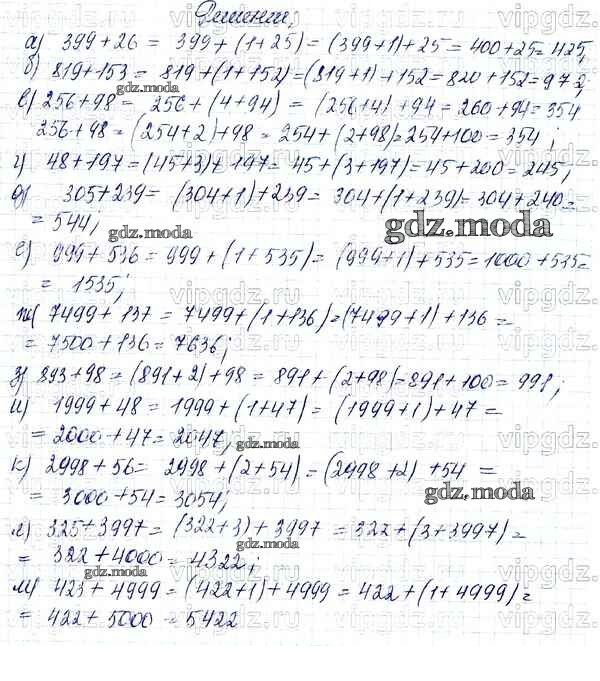 Решение;
а) 399+26 = 399+(1+25)=(399+1)+25=400+25=425;
б) 819+153 = 819+(1+152)=(819+1)+152=820+152=972;
в) 256+98 = 256+(4+94) = (256+4)+94=260+94=354
256+98=(254+2)+98=254+(2+98)=254+100=354;
г) 48+197=(45+3)+197=45+(3+197)=45+200=245;
д) 305+239= (304+1)+239= 304+(1+239)=304+240=
= 544;
е) 999+536=999+(1+535)= (999+1)+535=1000+535=
= 1535;
ж) 7499+137 = 7499+(1+136)=(7499+1)+136=
= 7500+136=7636;
з) 893+98=(891+2)+98 = 891+(2+98)=891+100=991;
и) 1999+48 = 1999+(1+47)= (1999+1)+47 =
= 2000+47=2047;
к) 2998+56= 2998+(2+54)=(2998+2)+54 =
= 3000+54=3054;
л) 325+3997= (322+3)+3997 =322+(3+3997)=
= 322+4000=4322;
м) 423+4999=(422+1)+4999=422+(1+4999)=
= 422+5000=5422
gdz.moda
gdz.moda
gdz.moda
gdz.moda
gdz.moda
gdz.moda
gdz.moda
vipgdz.ru